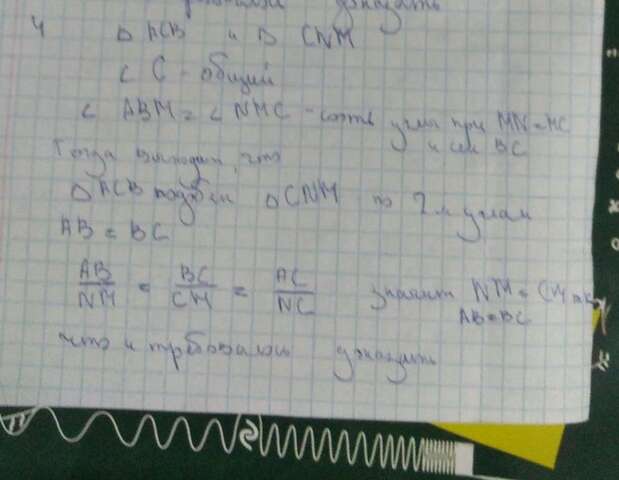 доказать
4 Δ ACB и Δ CNM
∠ C - общий
∠ ABM = ∠ NMC - соотв углы при MN = MC
и сек BC
Тогда выходит, что
Δ ACB подобен Δ CNM по 2м углам
AB = BC
AB/NM = BC/CM = AC/NC значит NM = CM т.к
AB=BC
что и требовалось доказать